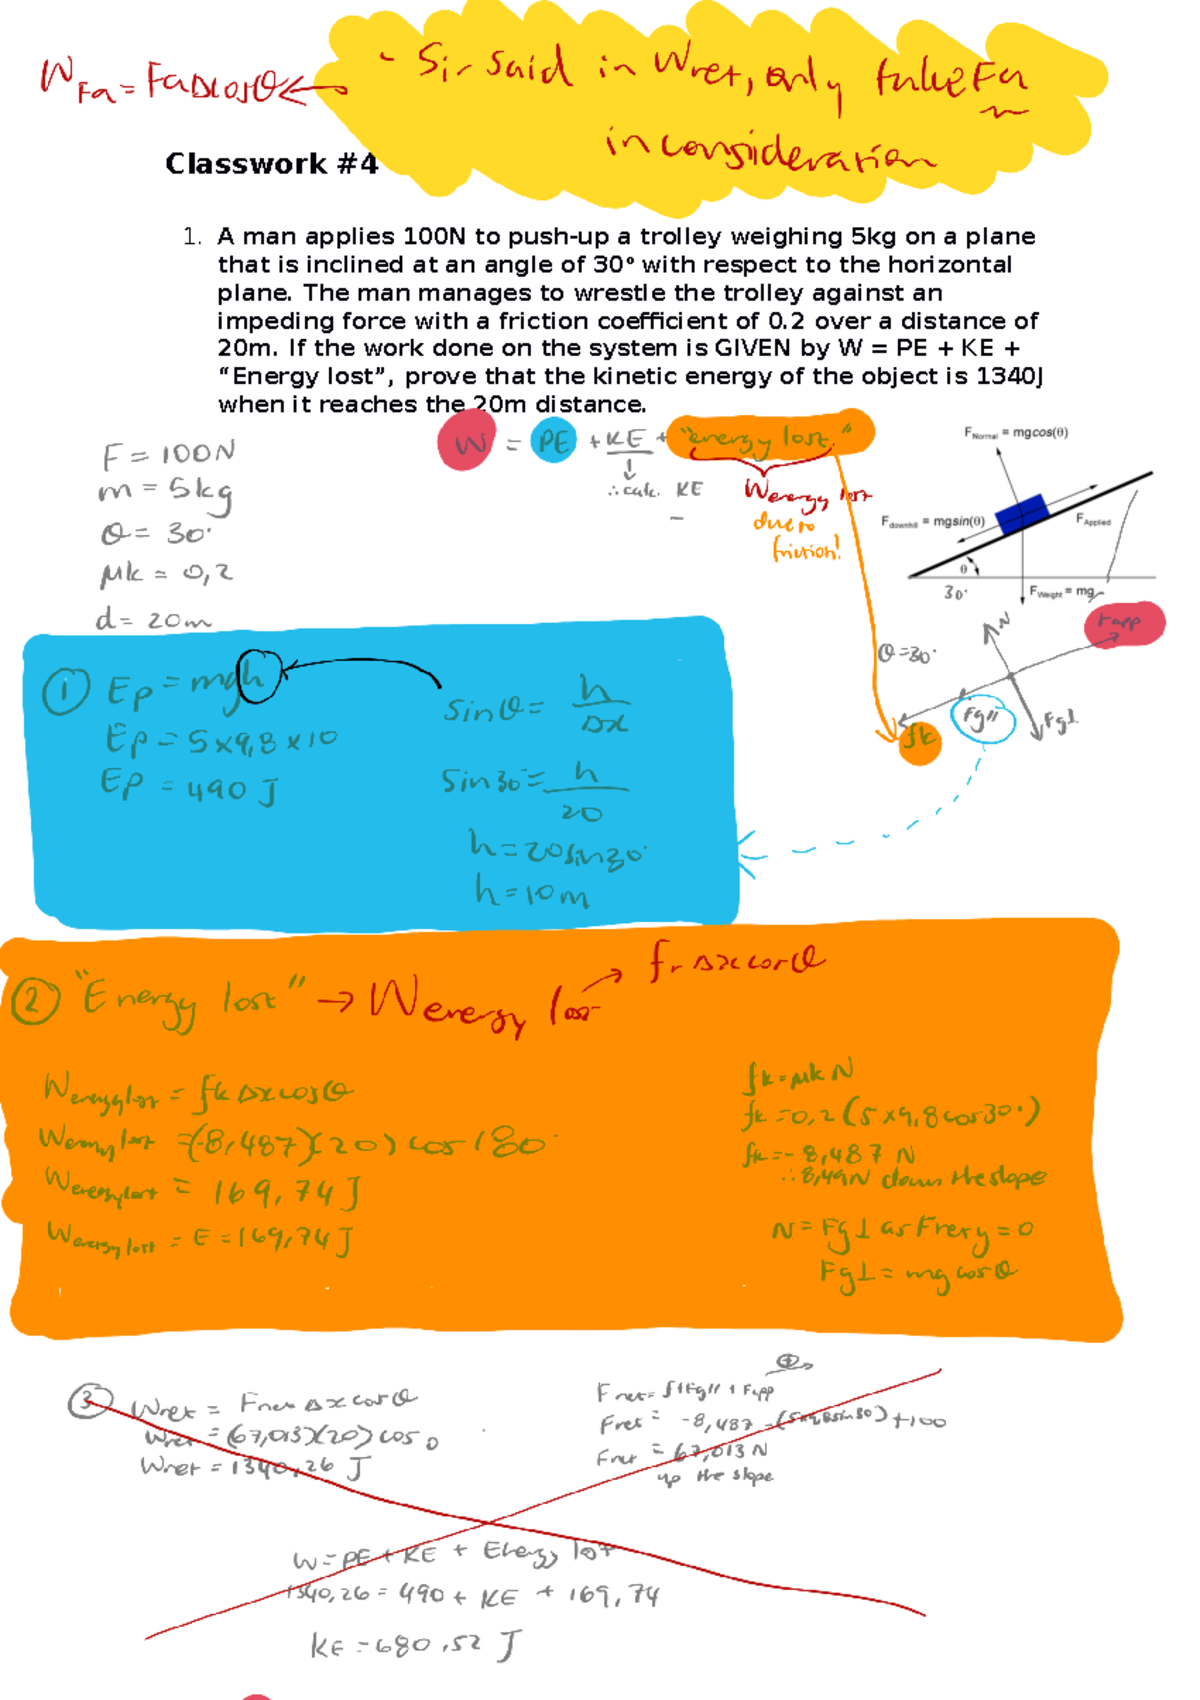 - Sir said in Wnet, only take Fa
WFa = FaΔxcosθ
in consideration
Classwork #4
1. A man applies 100N to push-up a trolley weighing 5kg on a plane
that is inclined at an angle of 30° with respect to the horizontal
plane. The man manages to wrestle the trolley against an
impeding force with a friction coefficient of 0.2 over a distance of
20m. If the work done on the system is GIVEN by W = PE + KE +
“Energy lost”, prove that the kinetic energy of the object is 1340J
when it reaches the 20m distance.
W = PE + KE + "energy lost."
∴ calc. KE
Wenergy lost
due to
friction!
F = 100N
m = 5kg
θ = 30°
μk = 0,2
d = 20m
FNormal = mgcos(θ)
Fdownhill = mgsin(θ)
FApplied
θ
30°
FWeight = mg
N
Fapp
θ = 30°
Fg//
Fg⊥
fk
① Ep = mgh
Ep = 5 x 9,8 x 10
Ep = 490 J
sinθ = h/Δx
sin30° = h/20
h = 20sin30°
h = 10m
② "Energy lost" → Wenergy lost → frΔxcosθ
Wenergy lost = fkΔxcosθ
Wenergy lost = (-8,487)(20)cos180°
Wenergy lost = 169,74J
Wenergy lost = E = 169,74J
fk = μkN
fk = 0,2(5 x 9,8cos30°)
fk = -8,487 N
∴ 8,49N down the slope
N = Fg⊥ as Fnety = 0
Fg⊥ = mgcosθ
③ Wnet = FnetΔxcosθ
Wnet = (67,013)(20)cos0
Wnet = 1340,26 J
⊕→
Fnet = f + Fg// + Fapp
Fnet = -8,487 - (5x9,8sin30) + 100
Fnet = 67,013 N
up the slope
W = PE + KE + Energy lost
1340,26 = 490 + KE + 169,74
KE = 680,52 J